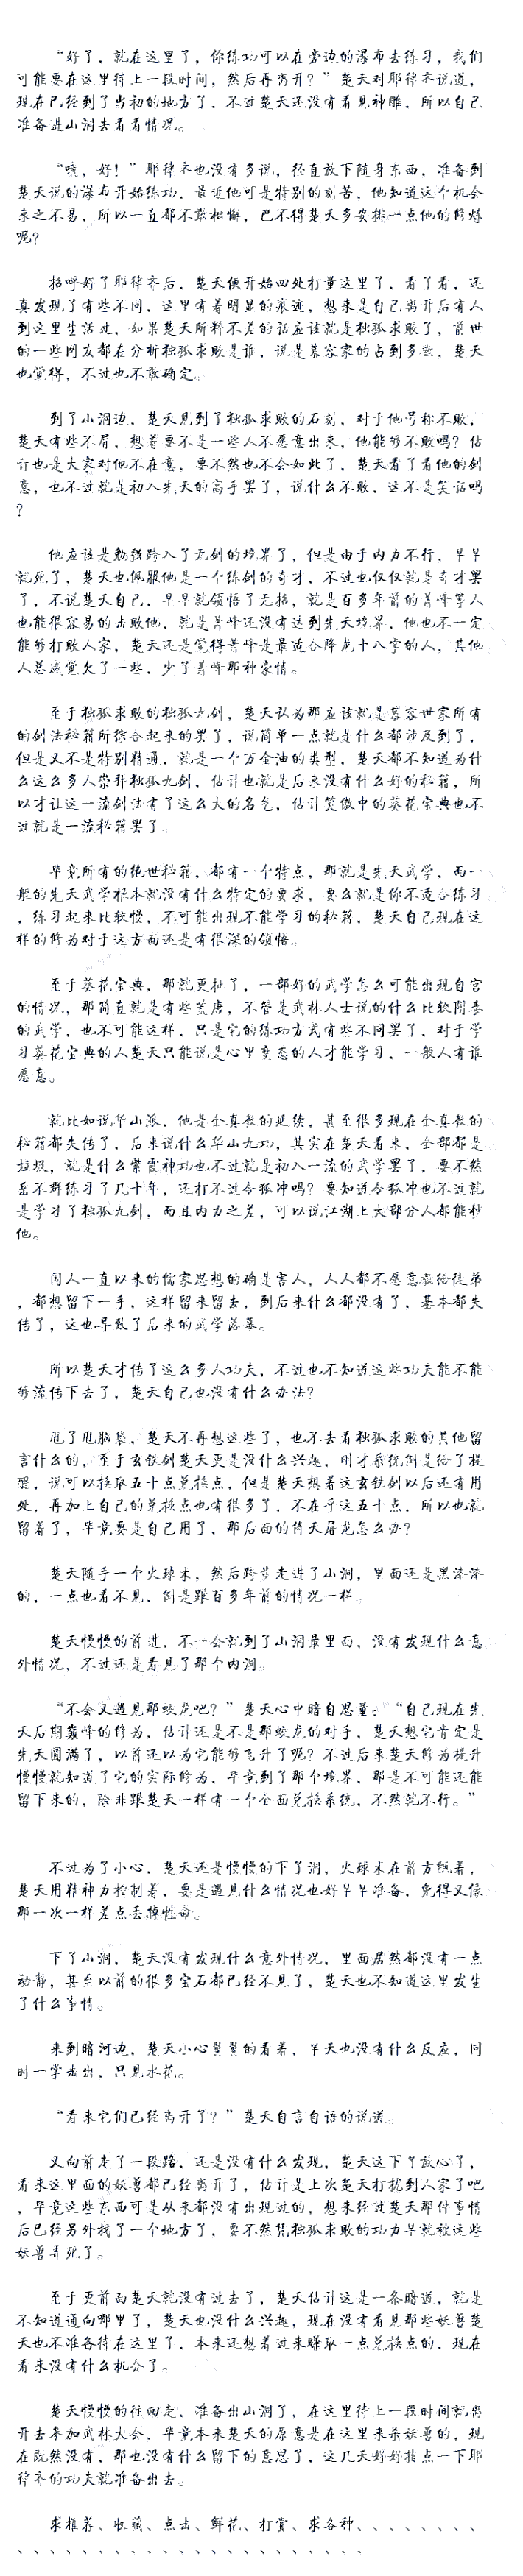 “好了，就在这里了，你练功可以在旁边的瀑布去练习，我们
可能要在这里待上一段时间，然后再离开？”楚天对耶律齐说道，
现在已经到了当初的地方了，不过楚天还没有看见神雕，所以自己
准备进山洞去看看情况。
“哦，好！”耶律齐也没有多说，径直放下随身东西，准备到
楚天说的瀑布开始练功，最近他可是特别的刻苦，他知道这个机会
来之不易，所以一直都不敢松懈，巴不得楚天多安排一点他的修炼
呢？
招呼好了耶律齐后，楚天便开始四处打量这里了，看了看，还
真发现了有些不同，这里有着明显的痕迹，想来是自己离开后有人
到这里生活过，如果楚天所料不差的话应该就是独孤求败了，前世
的一些网友都在分析独孤求败是谁，说是慕容家的占到多数，楚天
也觉得，不过也不敢确定。
到了山洞边，楚天见到了独孤求败的石刻，对于他号称不败，
楚天有些不屑，想着要不是一些人不愿意出来，他能够不败吗？估
计也是大家对他不在意，要不然也不会如此了，楚天看了看他的剑
意，也不过就是初入先天的高手罢了，说什么不败，这不是笑话吗
？
他应该是勉强跨入了无剑的境界了，但是由于内力不行，早早
就死了，楚天也佩服他是一个练剑的奇才，不过也仅仅就是奇才罢
了，不说楚天自己，早早就领悟了无招，就是百多年前的萧峰等人
也能很容易的击败他，就是萧峰还没有达到先天境界，他也不一定
能够打败人家，楚天还是觉得萧峰是最适合降龙十八掌的人，其他
人总感觉欠了一些，少了萧峰那种豪情。
至于独孤求败的独孤九剑，楚天认为那应该就是慕容世家所有
的剑法秘籍所综合起来的罢了，说简单一点就是什么都涉及到了，
但是又不是特别精通，就是一个万金油的类型，楚天都不知道为什
么这么多人崇拜独孤九剑，估计也就是后来没有什么好的秘籍，所
以才让这一流剑法有了这么大的名气，估计笑傲中的葵花宝典也不
过就是一流秘籍罢了。
毕竟所有的绝世秘籍，都有一个特点，那就是先天武学，而一
般的先天武学根本就没有什么特定的要求，要么就是你不适合练习
，练习起来比较慢，不可能出现不能学习的秘籍，楚天自己现在这
样的修为对于这方面还是有很深的领悟。
至于葵花宝典，那就更扯了，一部好的武学怎么可能出现自宫
的情况，那简直就是有些荒唐，不管是武林人士说的什么比较阴毒
的武学，也不可能这样，只是它的练功方式有些不同罢了，对于学
习葵花宝典的人楚天只能说是心里变态的人才能学习，一般人有谁
愿意。
就比如说华山派，他是全真教的延续，甚至很多现在全真教的
秘籍都失传了，后来说什么华山九功，其实在楚天看来，全部都是
垃圾，就是什么紫霞神功也不过就是初入一流的武学罢了，要不然
岳不群练习了几十年，还打不过令狐冲吗？要知道令狐冲也不过就
是学习了独孤九剑，而且内力之差，可以说江湖上大部分人都能秒
他。
国人一直以来的儒家思想的确是害人，人人都不愿意教给徒弟
，都想留下一手，这样留来留去，到后来什么都没有了，基本都失
传了，这也导致了后来的武学落寞。
所以楚天才传了这么多人功夫，不过也不知道这些功夫能不能
够流传下去了，楚天自己也没有什么办法？
甩了甩脑袋，楚天不再想这些了，也不去看独孤求败的其他留
言什么的，至于玄铁剑楚天更是没什么兴趣，刚才系统倒是给了提
醒，说可以换取五十点兑换点，但是楚天想着这玄铁剑以后还有用
处，再加上自己的兑换点也有很多了，不在乎这五十点，所以也就
留着了，毕竟要是自己用了，那后面的倚天屠龙怎么办？
楚天随手一个火球术，然后跨步走进了山洞，里面还是黑漆漆
的，一点也看不见，倒是跟百多年前的情况一样。
楚天慢慢的前进，不一会就到了山洞最里面，没有发现什么意
外情况，不过还是看见了那个内洞。
“不会又遇见那蛟龙吧？”楚天心中暗自思量：“自己现在先
天后期巅峰的修为，估计还是不是那蛟龙的对手，楚天想它肯定是
先天圆满了，以前还以为它能够飞升了呢？不过后来楚天修为提升
慢慢就知道了它的实际修为，毕竟到了那个境界，那是不可能还能
留下来的，除非跟楚天一样有一个全面兑换系统，不然就不行。”
不过为了小心，楚天还是慢慢的下了洞，火球术在前方飘着，
楚天用精神力控制着，要是遇见什么情况也好早早准备，免得又像
那一次一样差点丢掉性命。
下了山洞，楚天没有发现什么意外情况，里面居然都没有一点
动静，甚至以前的很多宝石都已经不见了，楚天也不知道这里发生
了什么事情。
来到暗河边，楚天小心翼翼的看着，半天也没有什么反应，同
时一掌击出，只见水花。
“看来它们已经离开了？”楚天自言自语的说道。
又向前走了一段路，还是没有什么发现，楚天这下子放心了，
看来这里面的妖兽都已经离开了，估计是上次楚天打扰到人家了吧
，毕竟这些东西可是从来都没有出现过的，想来经过楚天那件事情
后已经另外找了一个地方了，要不然凭独孤求败的功力早就被这些
妖兽弄死了。
至于更前面楚天就没有过去了，楚天估计这是一条暗道，就是
不知道通向哪里了，楚天也没什么兴趣，现在没有看见那些妖兽楚
天也不准备待在这里了，本来还想着过来赚取一点兑换点的，现在
看来没有什么机会了。
楚天慢慢的往回走，准备出山洞了，在这里待上一段时间就离
开去参加武林大会，毕竟本来楚天的原意是在这里来杀妖兽的，现
在既然没有，那也没有什么留下的意思了，这几天好好指点一下耶
律齐的功夫就准备出去。
求推荐、收藏、点击、鲜花、打赏、求各种、、、、、、、、
、、、、、、、、、、、、、、、、、、、、、、